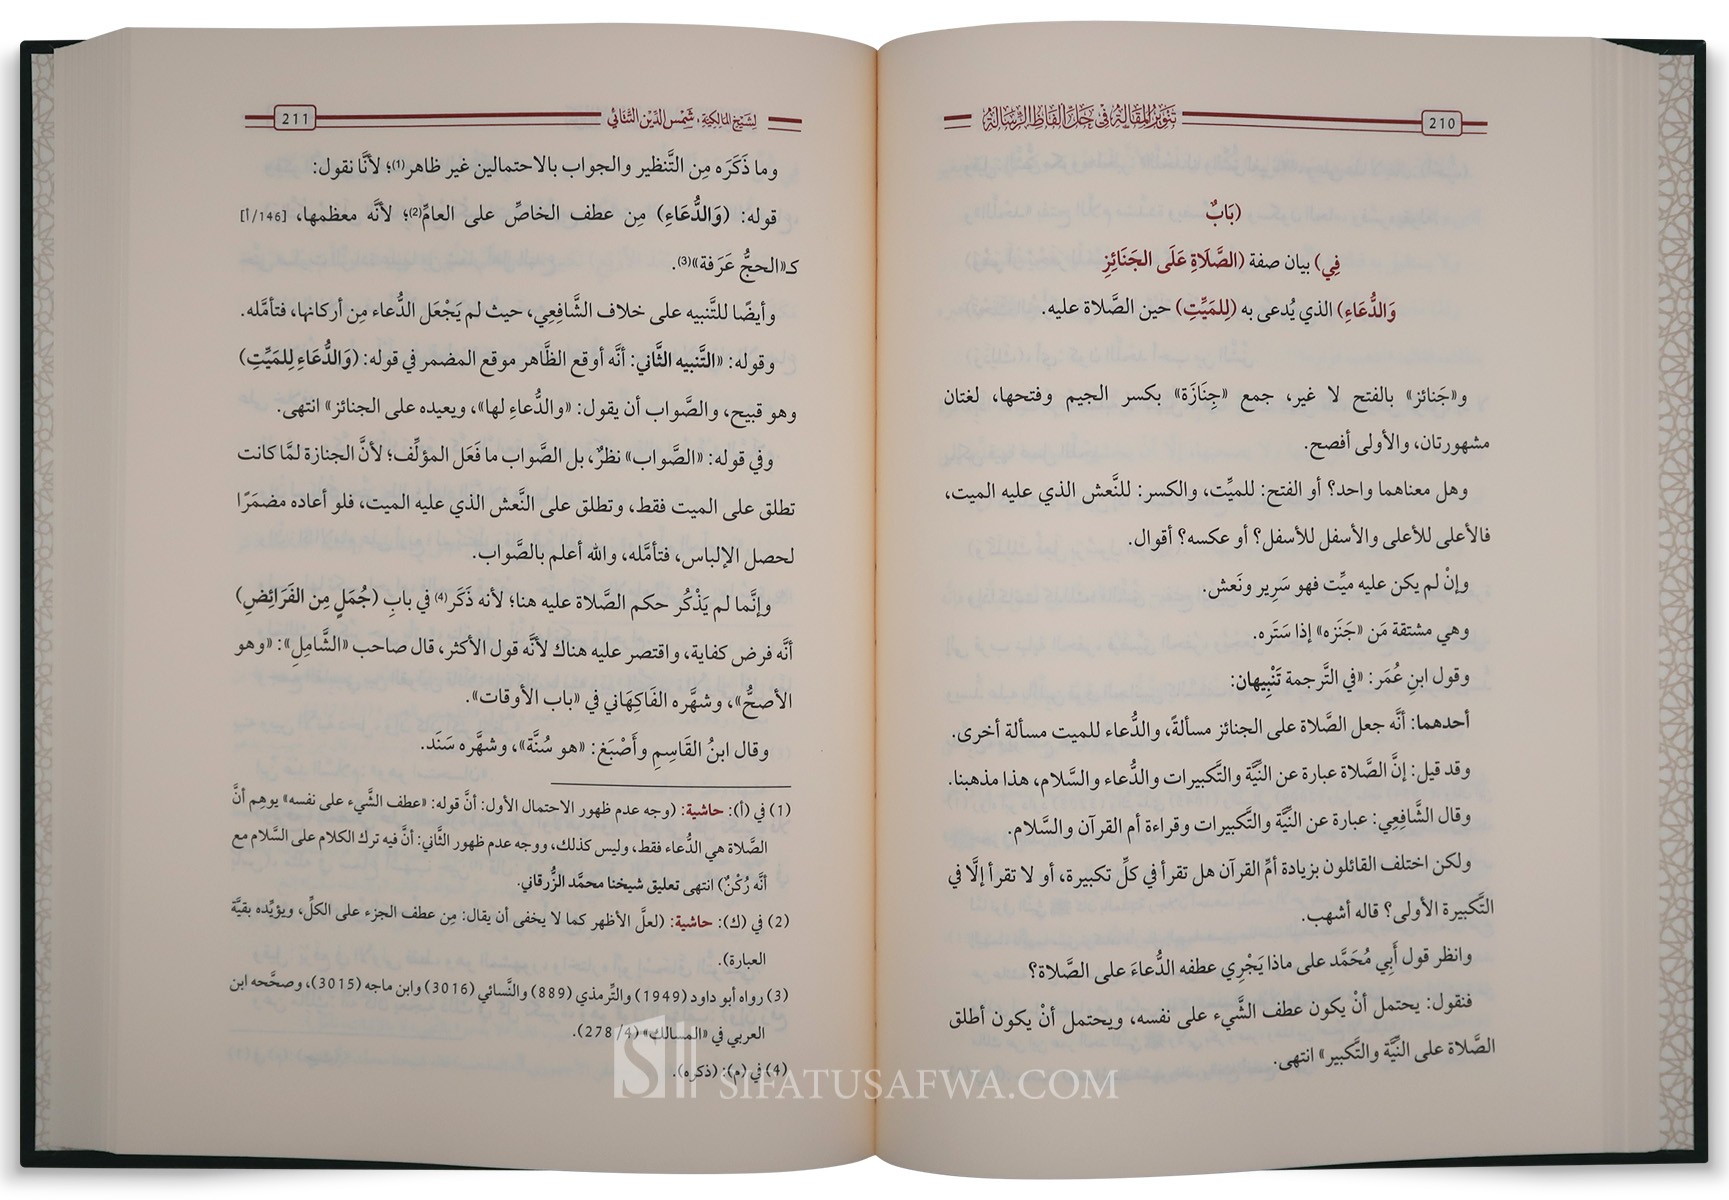 210
تنوير المقالة في حل ألفاظ الرسالة
(بَابٌ
فِي) بيان صفة (الصَّلَاةِ عَلَى الجَنَائِزِ
وَالدُّعَاءِ) الذي يُدعى به (لِلمَيِّتِ) حين الصَّلاة عليه.
و«جَنائز» بالفتح لا غير، جمع «جِنَازَة» بكسر الجيم وفتحها، لغتان
مشهورتان، والأولى أفصح.
وهل معناهما واحد؟ أو الفتح: للميِّت، والكسر: للنَّعش الذي عليه الميت،
فالأعلى للأعلى والأسفل للأسفل؟ أو عكسه؟ أقوال.
وإنْ لم يكن عليه ميِّت فهو سَرِير ونَعش.
وهي مشتقة مَن «جَنَزه» إذا سَتَره.
وقول ابنِ عُمَر: «في التَّرجمة تَنْبِيهان:
أحدهما: أنَّه جعل الصَّلاة على الجنائز مسألةً، والدُّعاء للميت مسألة أخرى.
وقد قيل: إنَّ الصَّلاة عبارة عن النِّيَّة والتَّكبيرات والدُّعاء والسَّلام، هذا مذهبنا.
وقال الشَّافِعِي: عبارة عن النِّيَّة والتَّكبيرات وقراءة أم القرآن والسَّلام.
ولكن اختلف القائلون بزيادة أمِّ القرآن هل تقرأ في كلِّ تكبيرة، أو لا تقرأ إلَّا في
التَّكبيرة الأولى؟ قاله أشهب.
وانظر قول أَبِي مُحَمَّد على ماذا يَجْرِي عطفه الدُّعاءَ على الصَّلاة؟
فنقول: يحتمل أنْ يكون عطف الشَّيء على نفسه، ويحتمل أنْ يكون أطلق
الصَّلاة على النِّيَّة والتَّكبير» انتهى.
لشيخ المالكية، شمس الدين التتائي
211
وما ذَكَرَه مِن التَّنظير والجواب بالاحتمالين غير ظاهر(1)؛ لأنَّا نقول:
قوله: (وَالدُّعَاءِ) مِن عطف الخاصِّ على العامِّ(2)؛ لأنَّه معظمها، [146/أ]
كـ«الحجُّ عَرَفة»(3).
وأيضًا للتَّنبيه على خلاف الشَّافِعِي، حيث لم يَجْعَل الدُّعاء مِن أركانها، فتأمَّله.
وقوله: «التَّنبيه الثَّاني: أنَّه أوقع الظَّاهر موقع المضمر في قوله: (وَالدُّعَاءِ لِلمَيِّتِ)
وهو قبيح، والصَّواب أن يقول: «والدُّعاءِ لها»، ويعيده على الجنائز» انتهى.
وفي قوله: «الصَّواب» نظرٌ، بل الصَّواب ما فَعَل المؤلِّف؛ لأنَّ الجنازة لمَّا كانت
تطلق على الميت فقط، وتطلق على النَّعش الذي عليه الميت، فلو أعاده مضمَرًا
لحصل الإلباس، فتأمَّله، والله أعلم بالصَّواب.
وإنَّما لم يَذْكُر حكم الصَّلاة عليه هنا؛ لأنه ذَكَر(4) في بابِ (جُمَلٍ مِن الفَرَائِضِ)
أنَّه فرض كفاية، واقتصر عليه هناك لأنَّه قول الأكثر، قال صاحب «الشَّامِلِ»: «وهو
الأصحُّ»، وشهَّره الفَاكِهَاني في «باب الأوقات».
وقال ابنُ القَاسِمِ وأَصْبَغ: «هو سُنَّة»، وشهَّره سَنَد.
(1) في (أ): حاشية: (وجه عدم ظهور الاحتمال الأول: أنَّ قوله: «عطف الشَّيء على نفسه» يوهم أنَّ
الصَّلاة هي الدُّعاء فقط، وليس كذلك، ووجه عدم ظهور الثَّاني: أنَّ فيه ترك الكلام على السَّلام مع
أنَّه رُكْنٌ) انتهى تعليق شيخنا محمَّد الزُّرقاني.
(2) في (ك): حاشية: (لعلَّ الأظهر كما لا يخفى أن يقال: مِن عطف الجزء على الكلِّ، ويؤيِّده بقيَّة
العبارة).
(3) رواه أبو داود (1949) والتِّرمذي (889) والنَّسائي (3016) وابن ماجه (3015)، وصحَّحه ابن
العربي في «المسالك» (4/ 278).
(4) في (م): (ذكره).
SIFATUSAFWA.COM